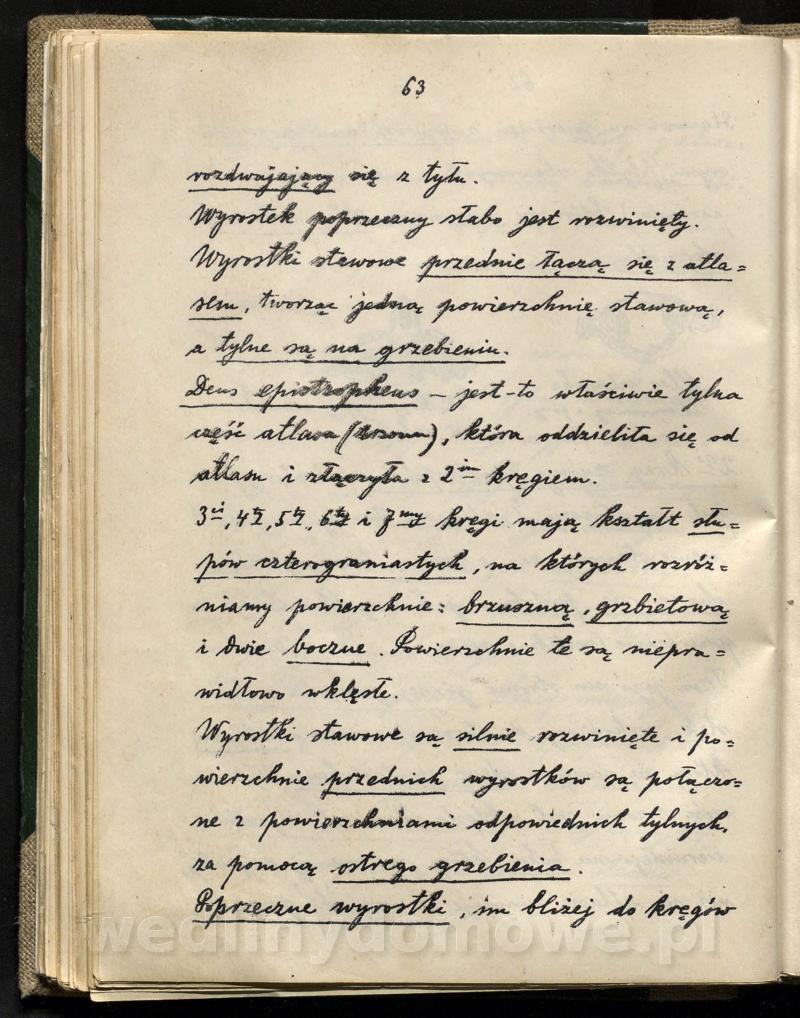 63
rozdwajający się z tyłu.
Wyrostek poprzeczny słabo jest rozwinięty.
Wyrostki stawowe przednie łączą się z atla=
sem, tworząc jedną powierzchnię stawową,
a tylne są na grzebieniu.
Dens epistropheus – jest-to właściwie tylna
część atlasa (trzonu), która oddzieliła się od
atlasu i złączyła z 2im kręgiem.
3ci, 4ty, 5ty, 6ty i 7my kręgi mają kształt słu=
pów czterograniastych, na których rozróż=
niamy powierzchnie: brzuszną, grzbietową
i dwie boczne. Powierzchnie te są niepra=
widłowo wklęsłe.
Wyrostki stawowe są silnie rozwinięte i po=
wierzchnie przednich wyrostków są połączo=
ne z powierzchniami odpowiednich tylnych,
za pomocą ostrego grzebienia.
Poprzeczne wyrostki, im bliżej do kręgów
wedlinydomowe.pl